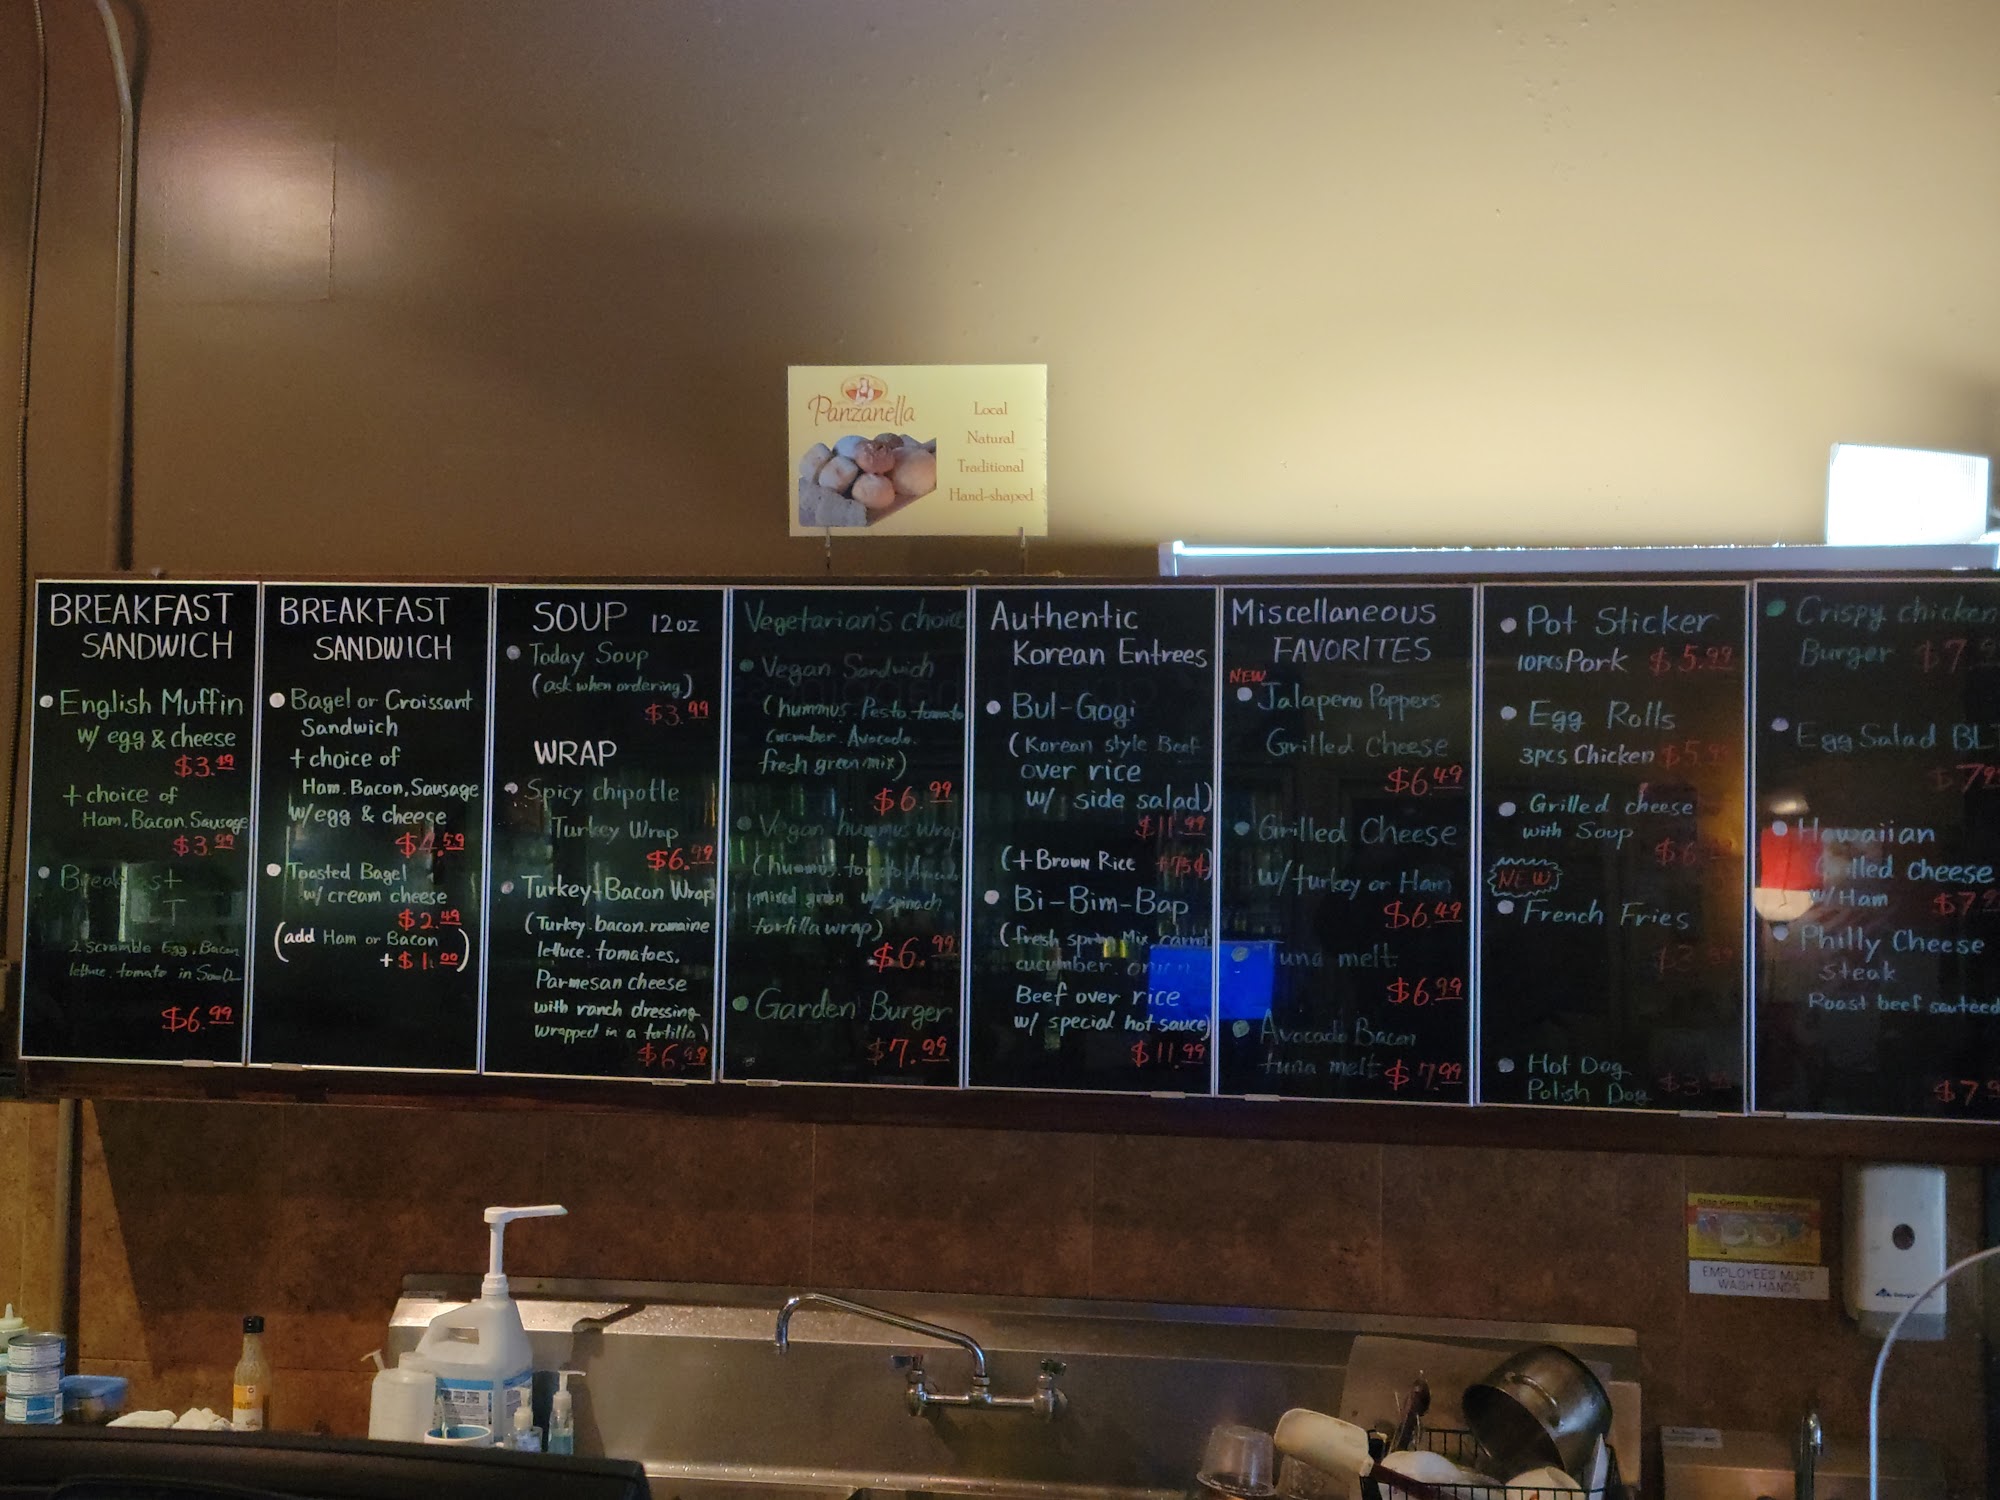 Panzanella
Local
Natural
Traditional
Hand-shaped
BREAKFAST
SANDWICH
English Muffin
w/ egg & cheese
$3.49
+ choice of
Ham, Bacon, Sausage
$3.99
2 Scramble Egg, Bacon
lettuce. tomato in
$6.99
BREAKFAST
SANDWICH
Bagel or Croissant
Sandwich
+ choice of
Ham. Bacon, Sausage
w/egg & cheese
$4.59
Toasted Bagel
w/ cream cheese
$2.49
(add Ham or Bacon
+$1.00)
SOUP 12oz
Today Soup
(ask when ordering)
$3.99
WRAP
Spicy chipotle
Turkey Wrap
$6.99
Turkey+Bacon Wrap
(Turkey.bacon.romaine
lettuce.tomatoes.
Parmesan cheese
with ranch dressing
wrapped in a tortilla)
$6.99
Vegetarian's choice
Vegan Sandwich
(hummus. Pesto. tomato
cucumber. Avocado.
fresh green mix)
$6.99
Vegan hummus wrap
(hummus. tomato Avocado
mixed green w/ spinach
tortilla wrap)
$6.99
Garden Burger
$7.99
Authentic
Korean Entrees
Bul-Gogi
(Korean style Beef
over rice
w/ side salad)
$11.99
(+Brown Rice +75¢)
Bi-Bim-Bap
(fresh spring Mix. carrot
cucumber. onion
Beef over rice
w/ special hot sauce)
$11.99
Miscellaneous
FAVORITES
NEW
Jalapeno Poppers
Grilled Cheese
$6.49
Grilled Cheese
w/turkey or Ham
$6.49
Tuna melt
$6.99
Avocado Bacon
tuna melt $7.99
Pot Sticker
10PCS Pork $5.99
Egg Rolls
3PCS Chicken
Grilled cheese
with Soup
NEW
French Fries
Hot Dog
Polish Dog
Crispy chicken
Burger
Egg Salad
Hawaiian
Grilled Cheese
w/Ham
Philly Cheese
Steak
Roast beef sauteed
EMPLOYEES MUST
WASH HANDS